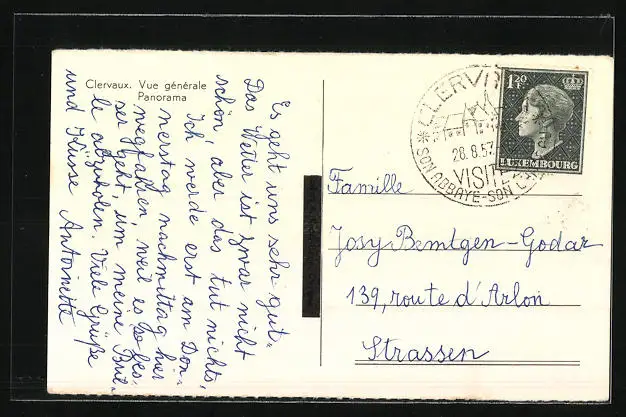 Clervaux. Vue générale
Panorama
Es geht uns sehr gut.
Das Wetter ist zwar nicht
schön, aber das tut nichts.
Ich werde erst am Don-
nerstag nachmittag hier
wegfahren, weil es
ser geht, um meine
le abzuholen. Viele Grüße
und Küsse Antoinette
CLERVAUX
28.8.57
VISITEZ
SON ABBAYE-SON
1F20
LUXEMBOURG
Famille
Josy Bemtgen-Godar
139, route d'Arlon
Strassen